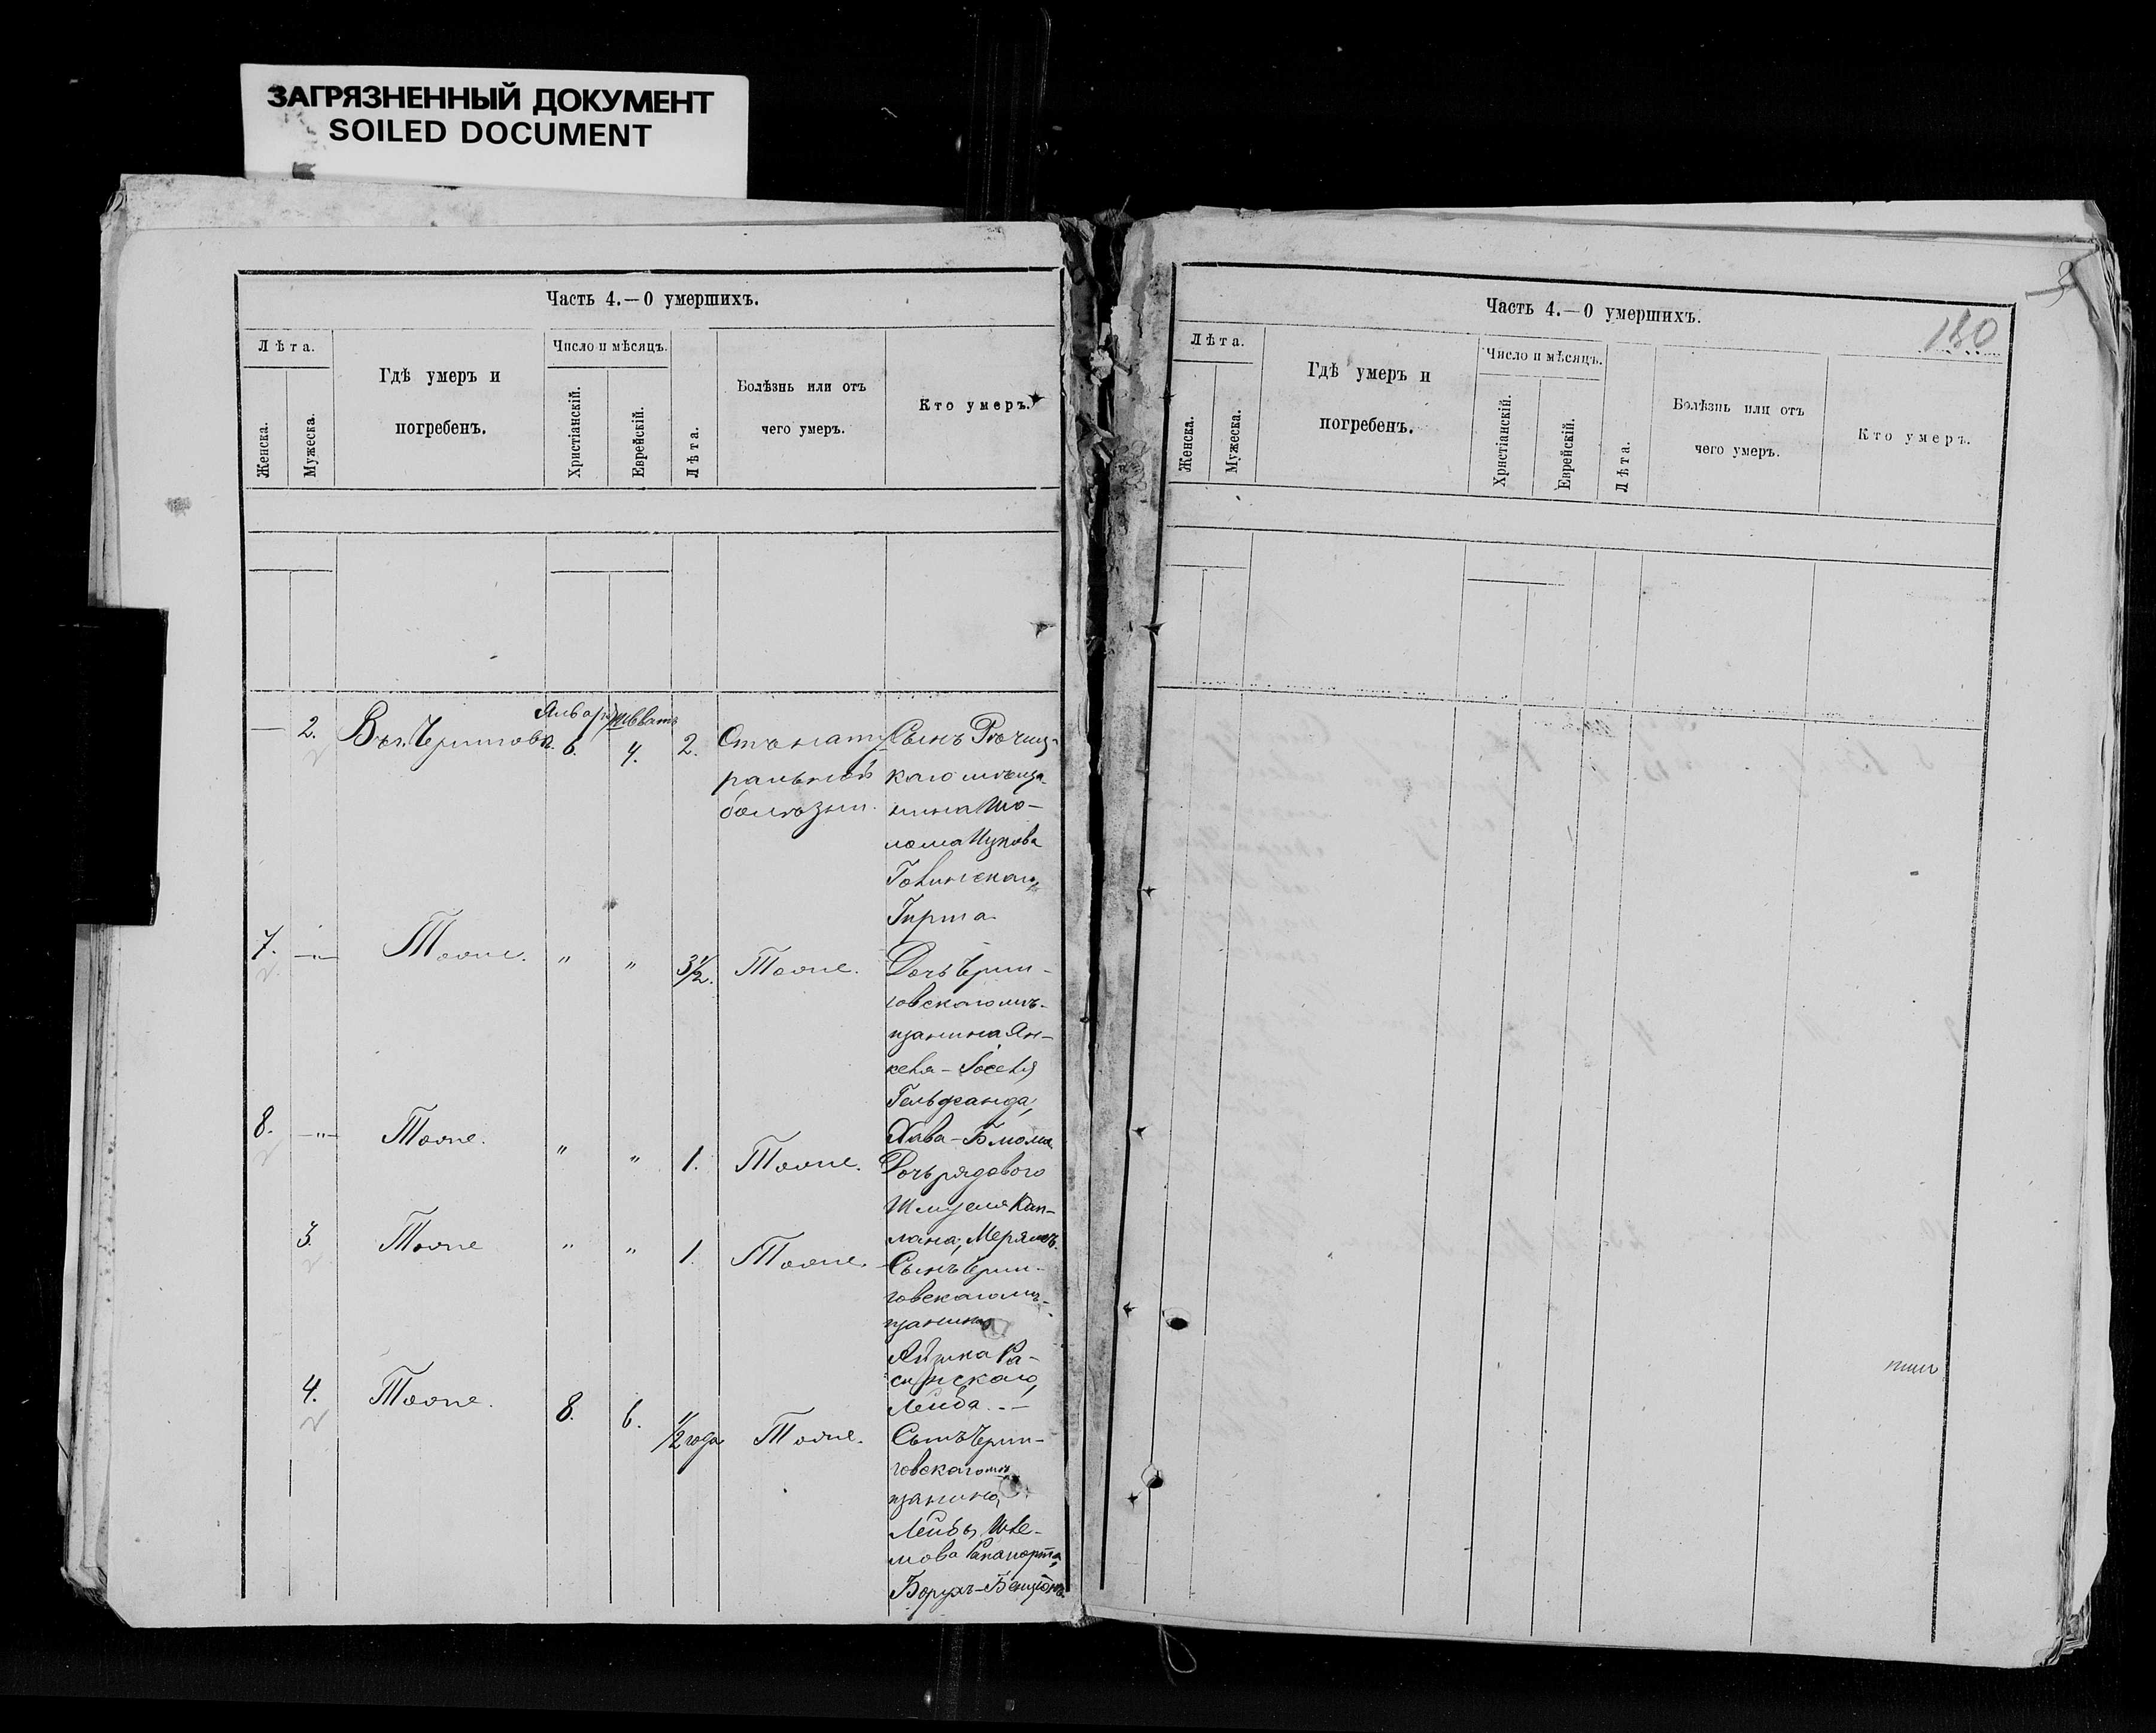 ЗАГРЯЗНЕННЫЙ ДОКУМЕНТ
SOILED DOCUMENT
Часть 4.—О умершихъ.
Лѣта.
Женска.
Мужеска.
Гдѣ умеръ и
погребенъ.
Число и мѣсяцъ.
Христіанскій.
Еврейскій.
Лѣта.
Болѣзнь или отъ
чего умеръ.
Кто умеръ.
— 2. Въ г. Чернигов Январь 6. 4. 2.
ральной
болѣзни.
Сынъ Рѣчиц-
каго мѣща-
нина Шо-
лома Ицкова
Гирша
7. —"— Тоже. " " 3½. Тоже.
Дочь Черни-
говскаго мѣ-
щанина Ян-
келя-Іоселя
Гельфанда,
Хава-Блюма
8. —"— Тоже. " " 1. Тоже.
Дочь рядового
Шмуеля Кап-
лана, Мерямъ.
3. Тоже " " 1. Тоже.
Сынъ Черни-
говскаго мѣ-
щанина
Лейба. —
4. Тоже. 8. 6. ½ года Тоже.
Сынъ Черни-
говскаго мѣ
щанина,
Лейбы
Рапапорта,
Борухъ-Бенціонъ.
Часть 4.—О умершихъ.
180
Лѣта.
Женска.
Мужеска.
Гдѣ умеръ и
погребенъ.
Число и мѣсяцъ.
Христіанскій.
Еврейскій.
Лѣта.
Болѣзнь или отъ
чего умеръ.
Кто умеръ.